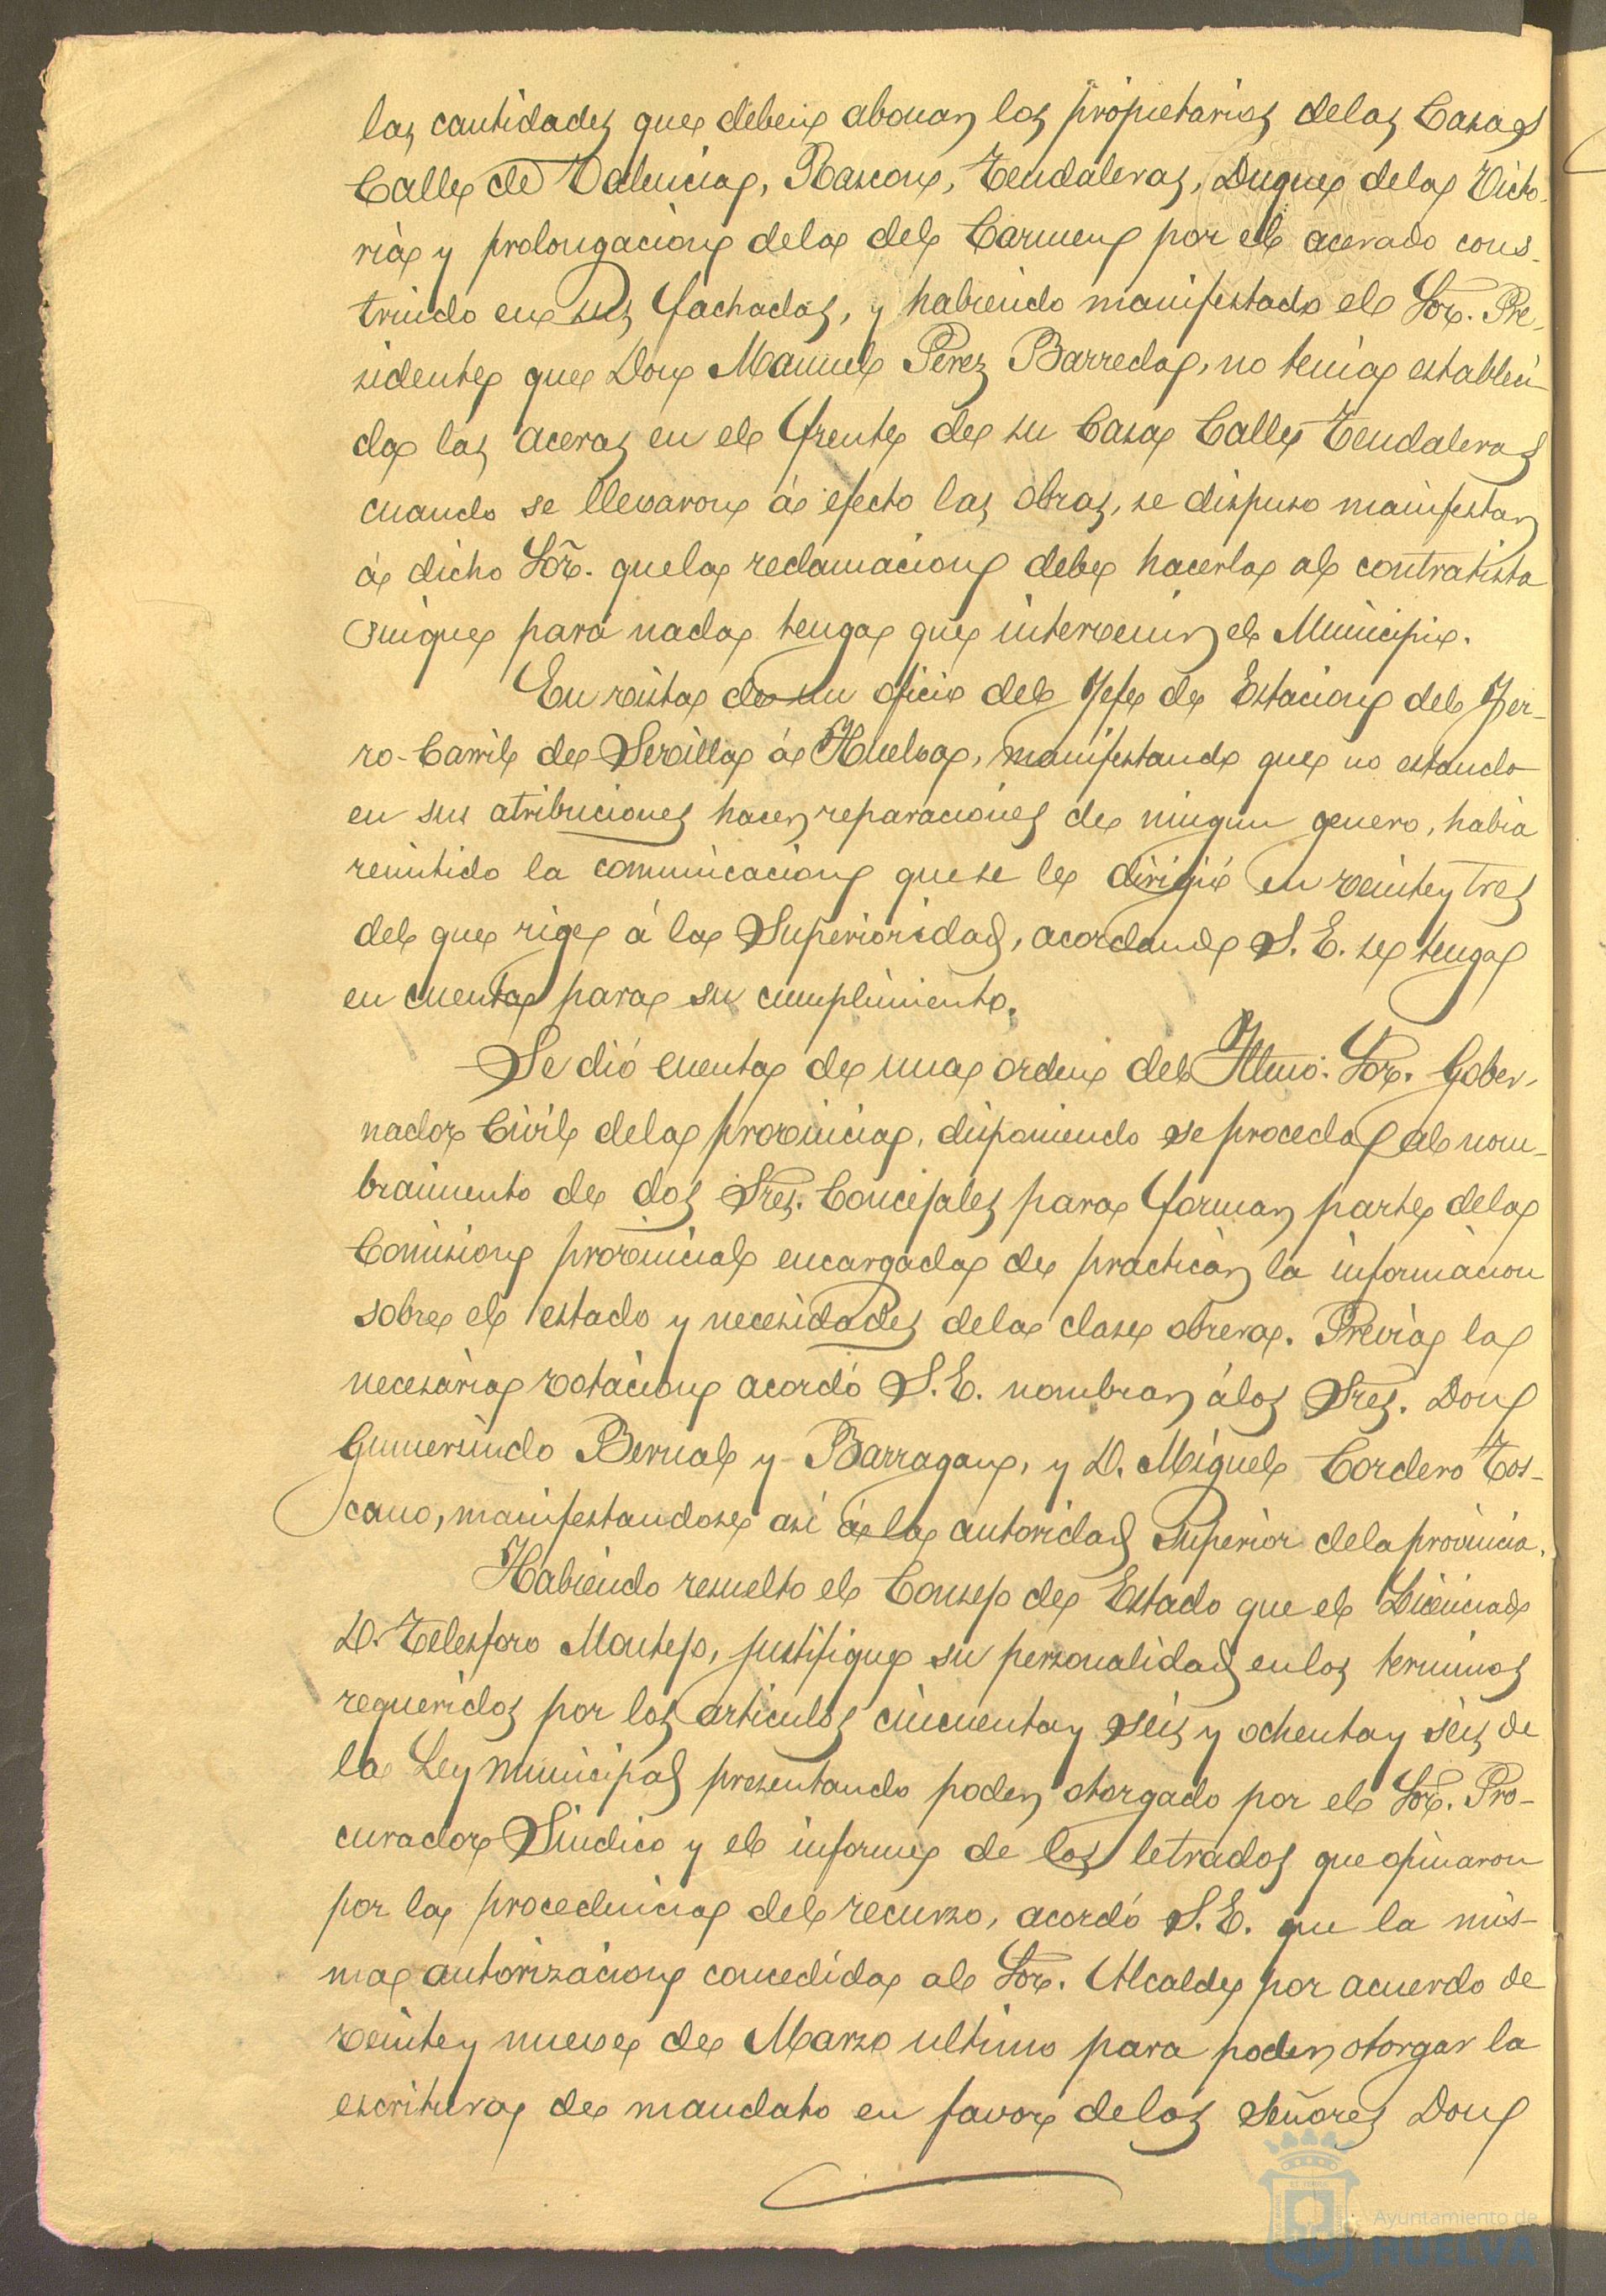 las cantidades que deben abonar los propietarios delas Casas
Calle de Valencia, Rascon, Tendaleras, Duque dela Victo-
ria y prolongacion dela del Carmen por el acerado cons-
truido en sus fachadas, y habiendo manifestado el Sor. Pre-
sidente que Don Manuel Perez Barreda, no tenia estableci-
da las aceras en el frente de su Casa Calle Tendaleras
cuando se llevaron á efecto las obras, se dispuso manifestar
á dicho Sor. quela reclamacion debe hacerla al contratista
sinque para nada tenga que intervenir el Municipio.
En vista de un oficio del Jefe de Estacion del Fer-
ro-Carril de Sevilla á Huelva, manifestando que no estando
en sus atribuciones hacer reparaciones de ningun genero, habia
remitido la comunicacion quese le dirigió en veintey tres
del que rige á la Superioridad, acordando S. E. se tenga
en cuenta para su cumplimiento.
Se dió cuenta de una orden del Iltmo. Sor. Gober-
nador Civil dela provincia, disponiendo se proceda al nom-
bramiento de dos Sres. Concejales para formar parte dela
Comision provincial encargada de practicar la informacion
sobre el estado y necesidades dela clase obrera. Previa la
necesaria votacion acordó S. E. nombrar álos Sres. Don
Gumersindo Bernal y Barragan, y D. Miguel Cordero Tos-
cano, manifestandose asi á la autoridad Superior dela provincia.
Habiendo resuelto el Consejo de Estado que el Licenciado
D. Telesforo Montejo, justifique su personalidad enlos terminos
requeridos por los articulos cincuentay seis y ochentay seis de
la Ley municipal presentando poder otorgado por el Sor. Pro-
curador Sindico y el informe de los letrados que opinaron
por la procedencia del recurso, acordó S. E. que la mis-
ma autorizacion concedida al Sor. Alcalde por acuerdo de
veintey nueve de Marzo ultimo para poder otorgar la
escritura de mandato en favor delos Señores Don
Ayuntamiento de
HUELVA